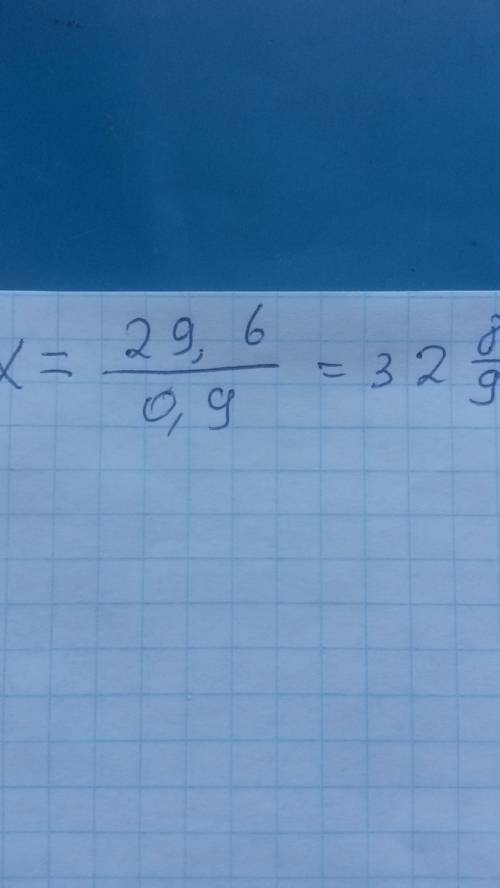 x = 29,6 / 0,9 = 32 8/9